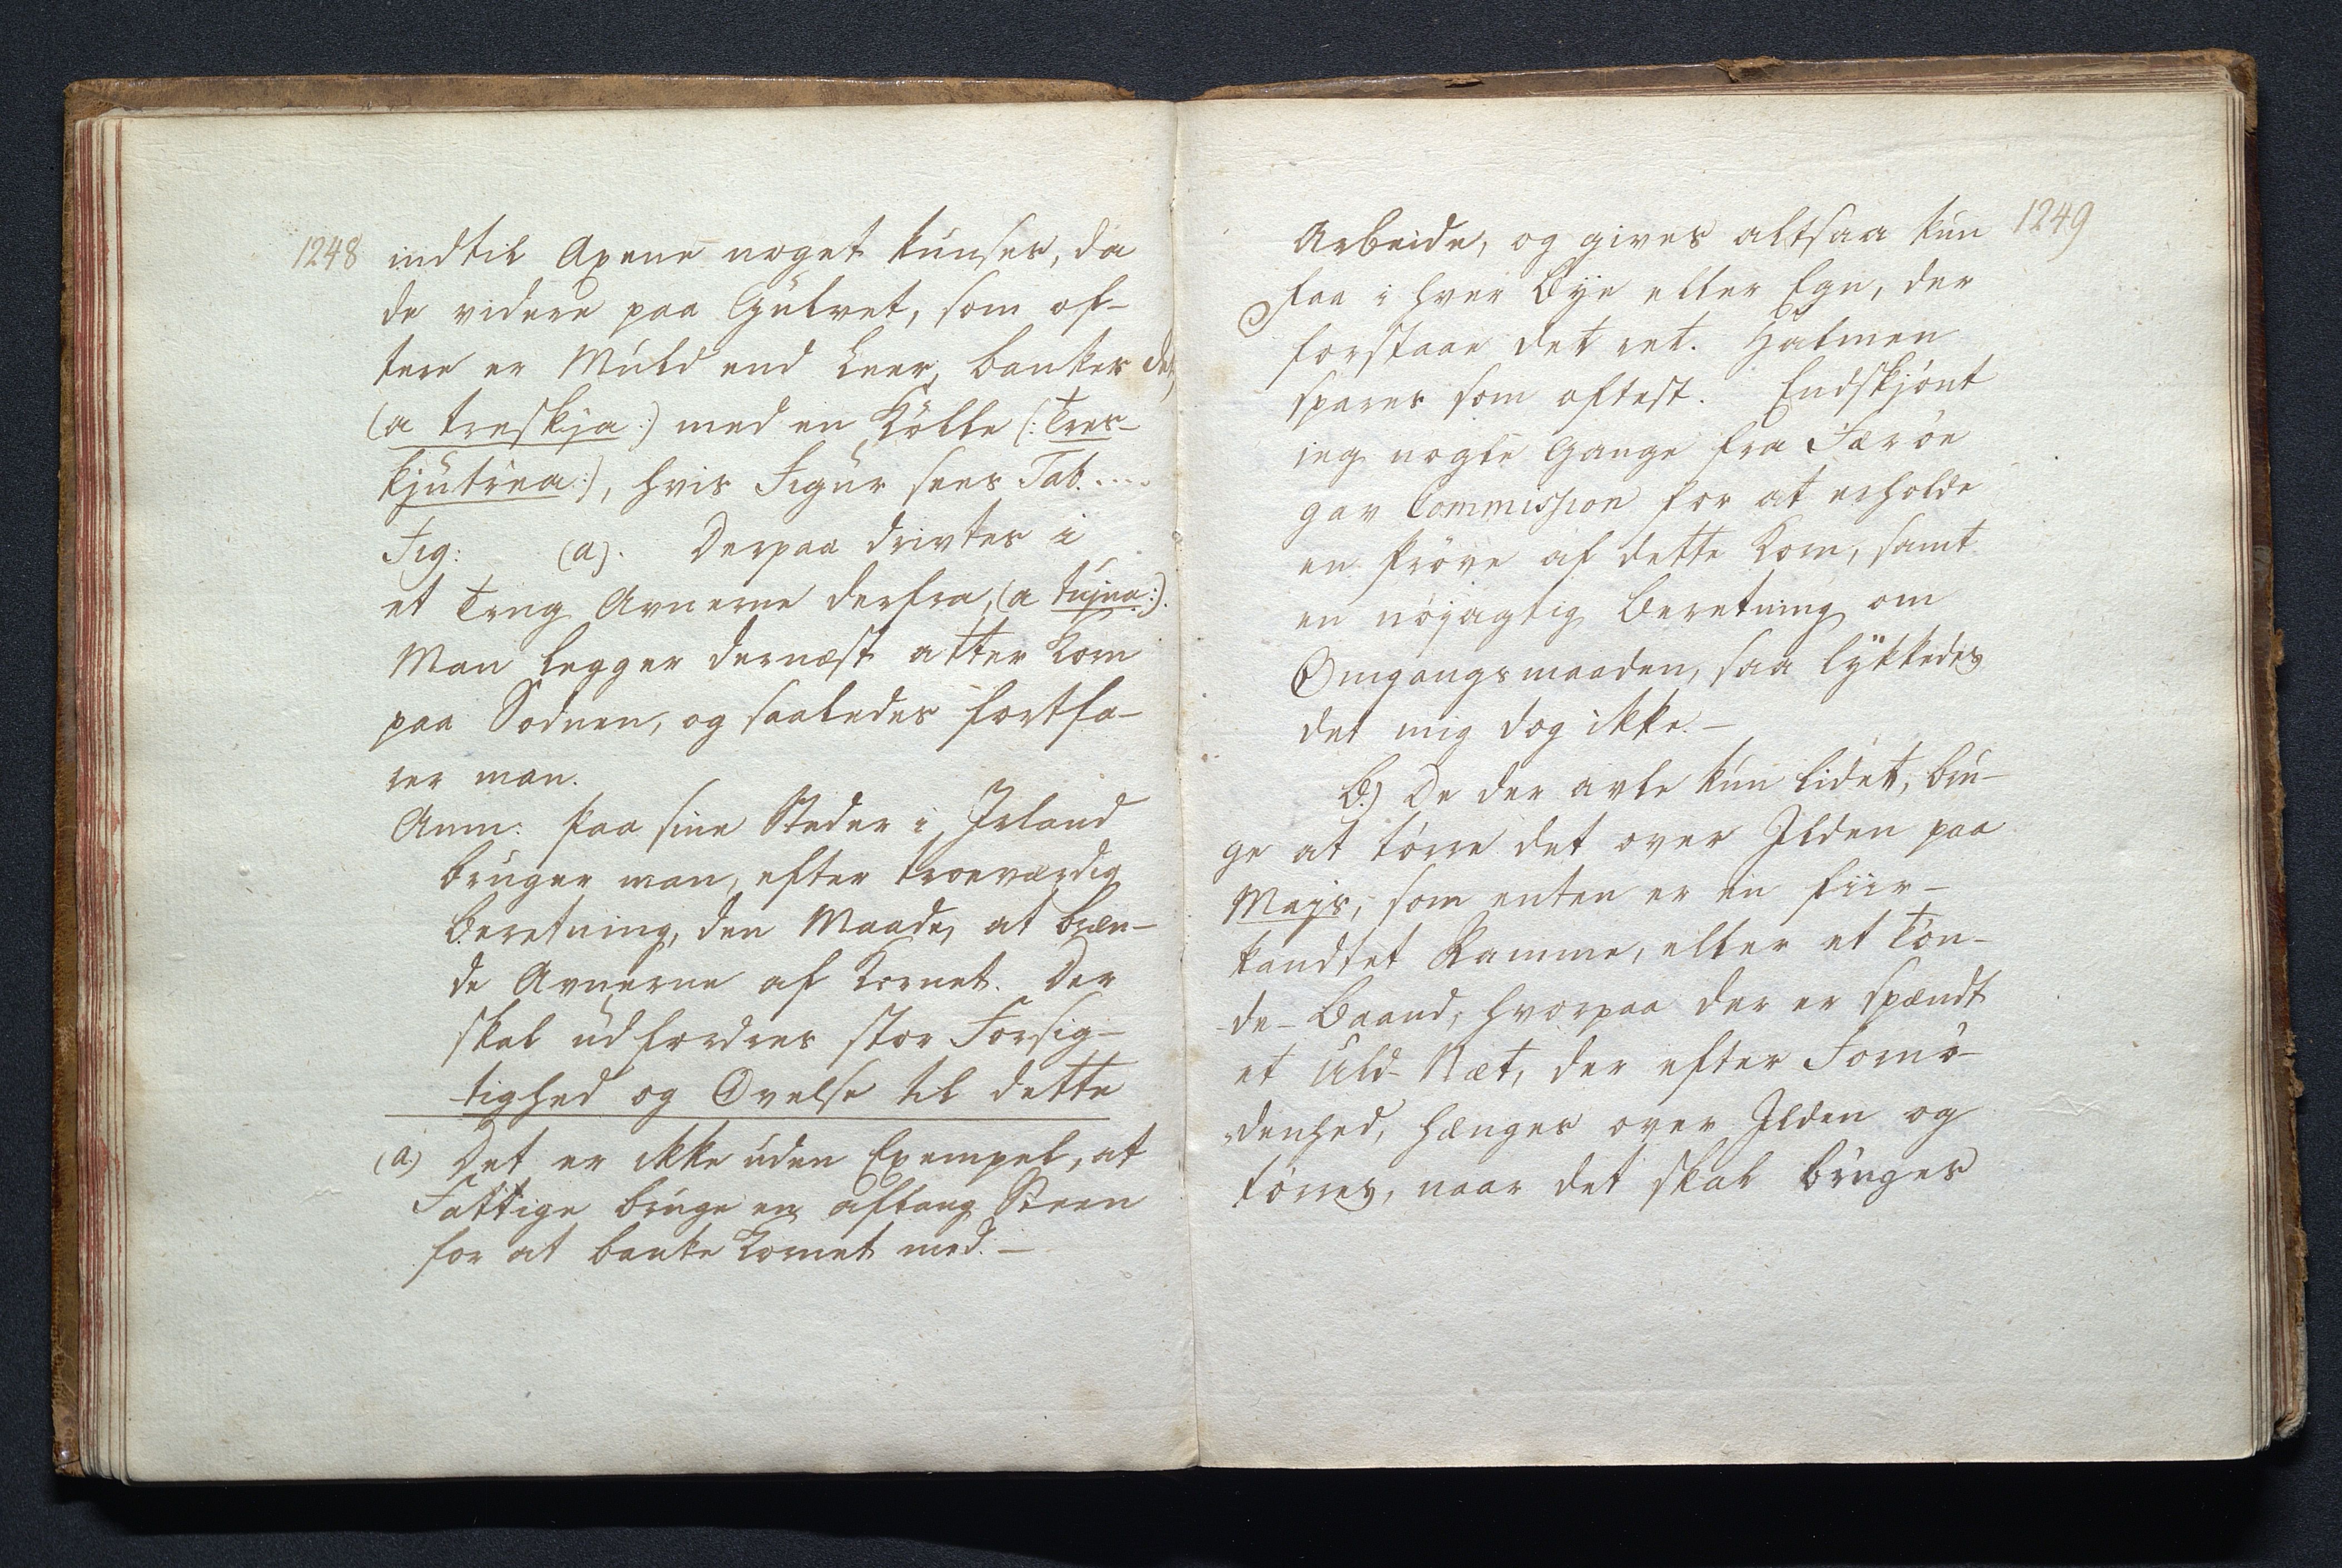 1248
indtil Axene noget knuses, da
de videre paa Gulvet, som of-
tere er Muld end Leer, bankes det,
(a treskja:) med en Kölle (: Tres-
kjutrea:), hvis Figur sees Tab. ....
Fig: (a). Derpaa drivtes i
et Trug Avnerne derfra, (a tujna:).
Man legger dernæst atter Korn
paa Sodnen, og saaledes fortfa-
rer man.
Anm: Paa sine Steder i Irland
bruger man, efter troeværdig
Beretning, den Maade, at bræn-
de Avnerne af Kornet. Der
skal udfordres stor Forsig-
tighed og Øvelse til dette
(a) Det er ikke uden Exempel, at
Fattige bruge en aflang Steen
for at banke Kornet med. —
1249
Arbeide, og gives altsaa kun
faa i hver Bÿe eller Egn, der
forstaae det ret. Halmen
spares som oftest. Endskjönt
ieg nogle Gange fra Færöe
gav Commission for at erholde
en Pröve af dette Korn, samt
en nöjagtig Beretning om
Omgangsmaaden, saa lÿkkedes
det mig dog ikke. —
B.) De der avle kun lidet, bru-
ge at törre det over Ilden paa
Majs, som enten er en fiir-
kandtet Ramme, eller et Tön-
de-Baand, hvorpaa der er spændt
et Uld-Næt, der efter Fornö-
denhed, hænges over Ilden og
törres, naar det skal bruges